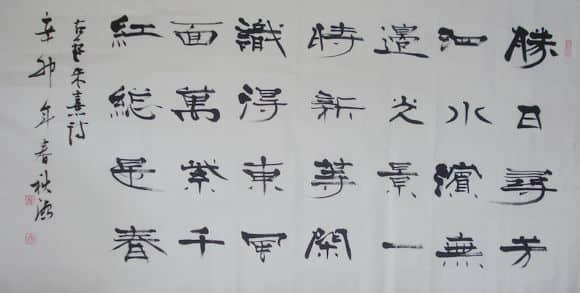 勝日尋芳
泗水濱無
邊光景一
時新等閑
識得東風
面萬紫千
紅總是春
朱熹詩
辛卯年春秋